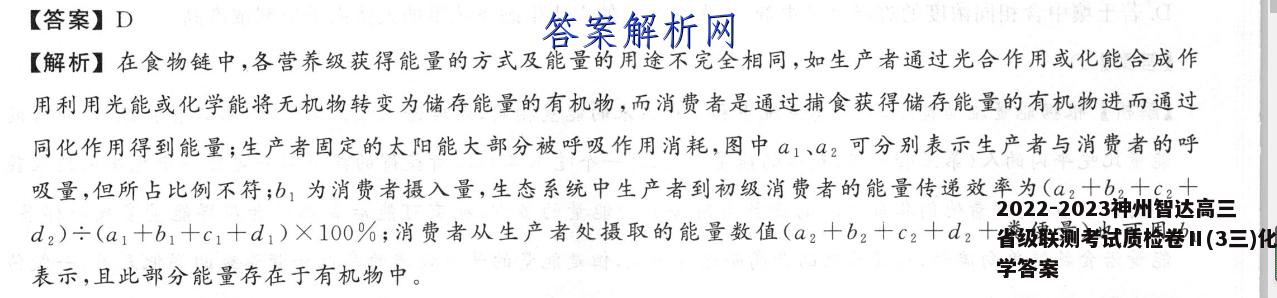 【答案】D
答案解析网
【解析】在食物链中,各营养级获得能量的方式及能量的用途不完全相同,如生产者通过光合作用或化能合成作
用利用光能或化学能将无机物转变为储存能量的有机物,而消费者是通过捕食获得储存能量的有机物进而通过
同化作用得到能量;生产者固定的太阳能大部分被呼吸作用消耗,图中 a₁、a₂ 可分别表示生产者与消费者的呼
吸量,但所占比例不符;b₁ 为消费者摄入量,生态系统中生产者到初级消费者的能量传递效率为(a₂+b₂+c₂+
d₂)÷(a₁+b₁+c₁+d₁)×100%;消费者从生产者处摄取的能量数值(a₂+b₂+c₂+d₂+
表示,且此部分能量存在于有机物中。
2022-2023神州智达高三
省级联测考试质检卷Ⅱ(3三)化
学答案